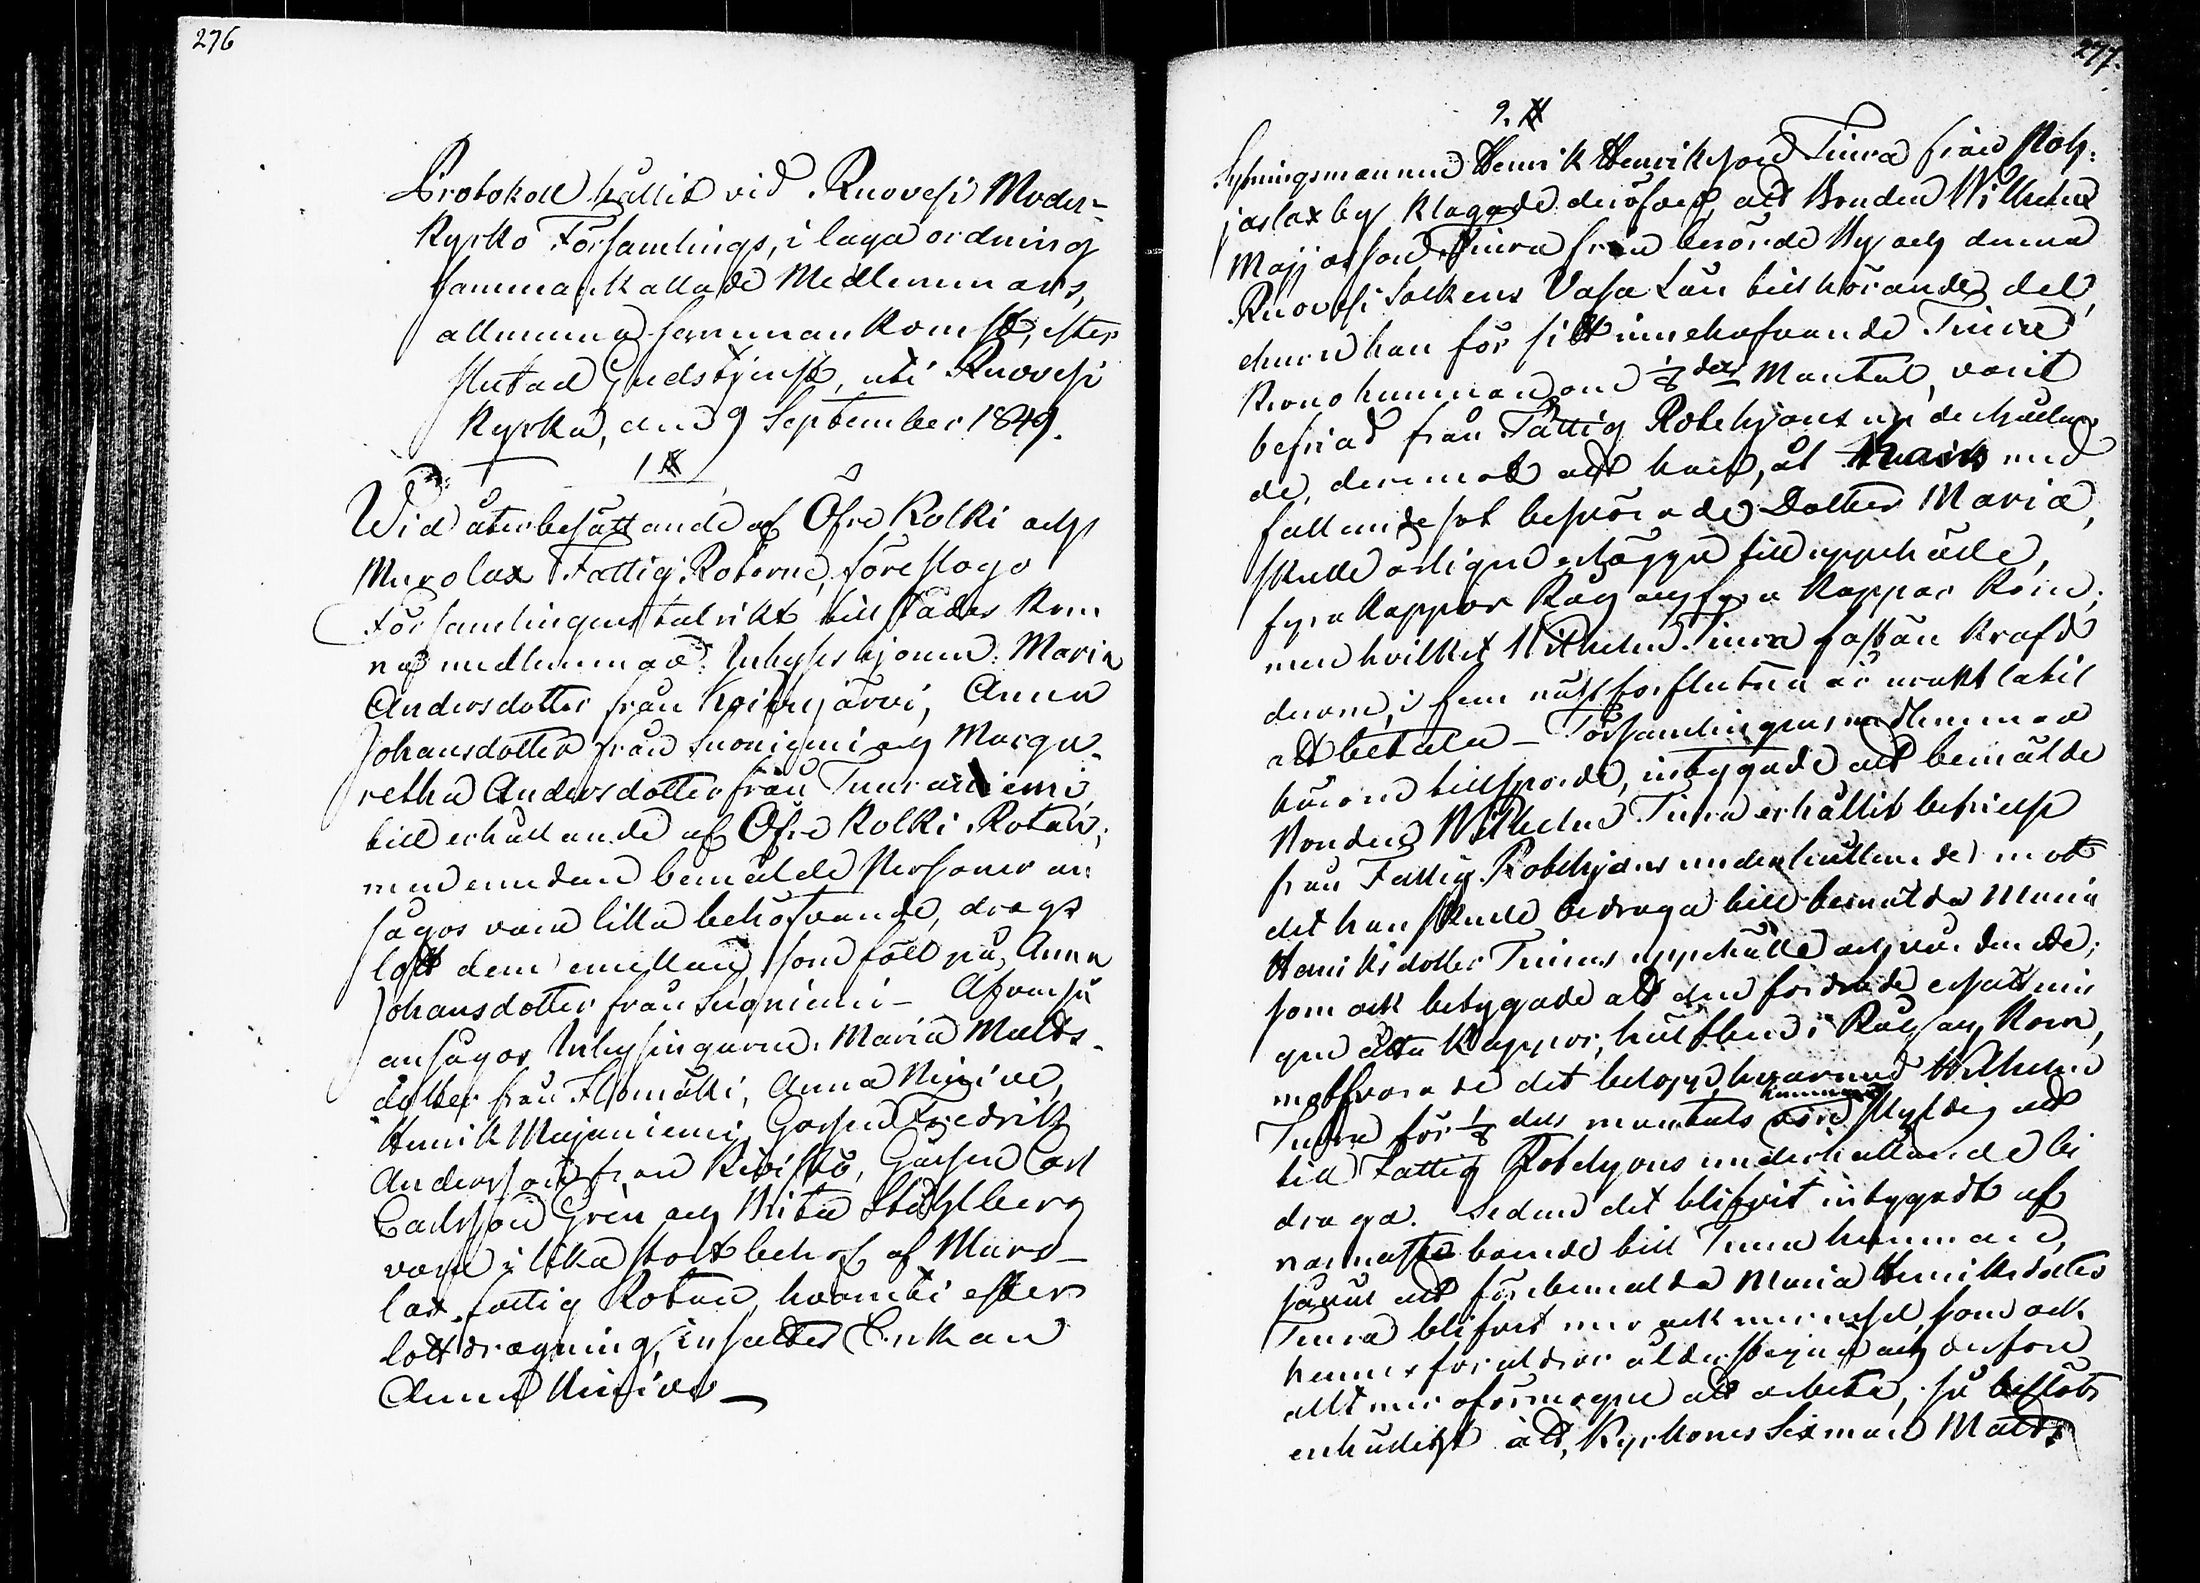 276
Protokoll hållit vid Ruovesi Moder-
kyrko Församlings, i laga ordning
sammankallade Medlemmars,
allmänna sammankomst, efter
slutad Gudstjenst, uti Ruovesi
Kyrka, den 9 September 1849.
1 §
Wid återbesättande af Öfre Kolki och
Murolax Fattig Roterne, föreslogo
Församlingens talrikt tillstädes kom
ne medlemmar: Inhyses hjonen: Maria
Andersdotter från Koikujärvi, Anna
Johansdotter från Suoniemi och Marga-
retha Andersdotter från Tuuraniemi
till erhållande af Öfre Kolki Rotan;
men emedan bemälde Personer an-
sågos vara lika behöfvande, drogs
lott dem emellan, som föll på, Anna
Johansdotter från Suoniemi – Äfvenså
ansågos Inhysingarne: Maria Matts-
dotter från Ilomäki, Anna
Henrik Majaniemi, Gossen Fredrik
Andersson från Kivistö, Gossen Carl
Carlsson Grén och Brita Ståhlberg
vara i lika stort behof af Muro-
lax fattig Rotan, hvaruti efter
lottdragning, insattes Enkan
Anna
277.
2. §
Sytningsmannen Henrik Henriksson Tiura från Poh-
jaslax by klagade deröfver, att Bonden Wilhelm
Majjasson Tiura från berörde By och denna
Ruovesi Sockens Vasa Län tillhörande del,
churu han för sitt innehafvande Tiura
Krono hemman om 1/8 dels Mantal, varit
befriad från Fattig Rotehjons uppehållan-
de, deremot att han, åt med
fallandesot besvärade Dotter Maria,
skulle årligen erlägga till uppehälle,
fyra kappar Råg och fyra kappar Korn;
men hvilket Wilhelm Tiura fastän kräfd
derom, i fem näst förflutna år uraktlåtit
att betala – Församlingens medlemmar
härom tillsporde, intygade att bemälde
Bonden Wilhelm Tiura erhållit befrielse
från Fattig Rotehjons underhållande mot
det han skulle bidraga till bemälda Maria
Henriksdotter Tiuras uppehälle och vårdande;
som ock betygade att den fordrade ersättnin
gen åtta Kappar, hälften i Råg och Korn,
motsvarade det belopp hvarmed Wilhelm
Tiura för 1/8 dels mantals hemman vore skyldig att
till Fattig Rotehjons underhållande bi
draga. Sedan det blifvit intygadt af
närmaste boende till Tiura hemman,
såväl att förbemälda Maria Henriksdotter
Tiura blifvit mer och mer usel, som ock
hennes föräldrar ålderstegna och derföre
allt mer oförmögne att arbeta, så beslöts
enhälligt att, Kyrkones Sexman Matts